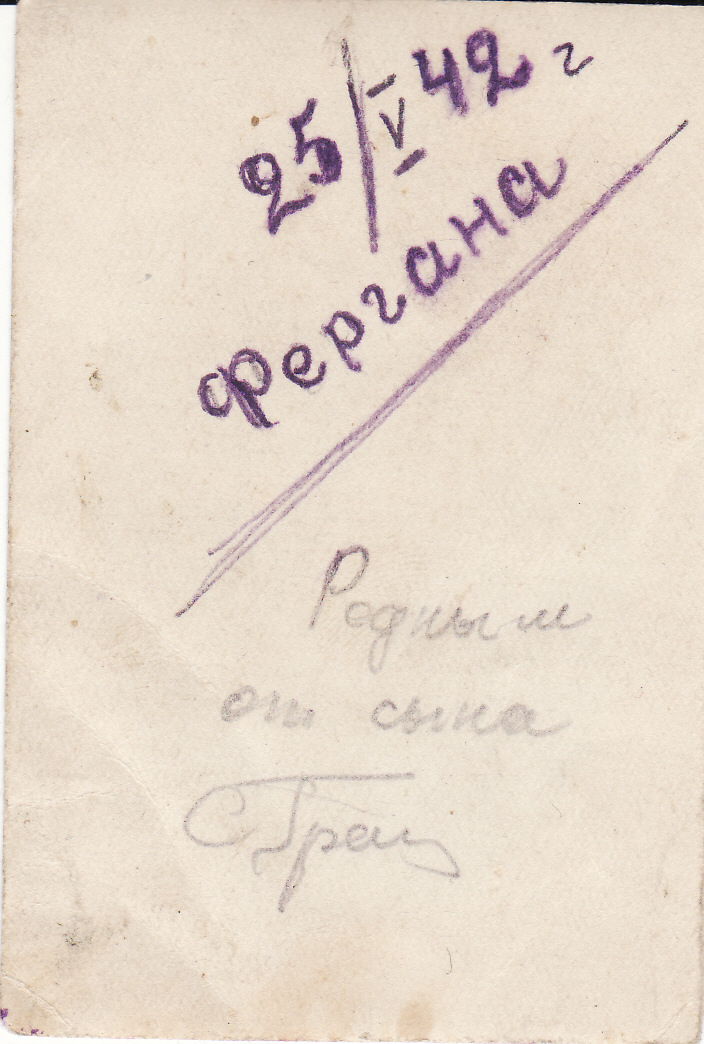 25/V 42 г
Фергана
Родным
от сына